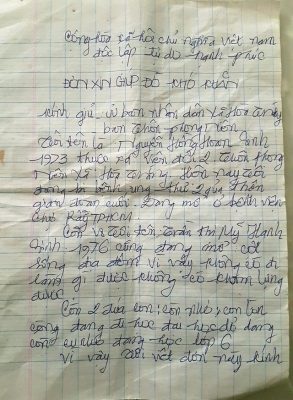 Cộng hòa xã hội chủ nghĩa việt nam
độc lập - tự do - hạnh phúc
ĐƠN XIN GIÚP ĐỠ KHÓ KHĂN
kính gửi ủy ban nhân dân xã Hòa
ban thôn phong
Tôi tên là Nguyễn Hồng Hoan sinh
1973 thuộc xã thôn phong
xã Hòa Hôm nay tôi
đang bị bệnh ung thư
gian đoan cuối. Đang mổ ở bệnh viện
chợ Rẫy TPHCM
Còn vợ tôi tên Trần Thị Mỹ Hạnh
sinh 1976 cũng đang mổ cột
sống đĩa đệm vì vậy không có đi
làm gì được không có khom lưng
được.
Còn 2 đứa con; còn nhỏ; con lớn
cũng đang đi học đại học dở dang
con nhỏ đang học lớp 6
vì vậy tôi viết đơn này kính